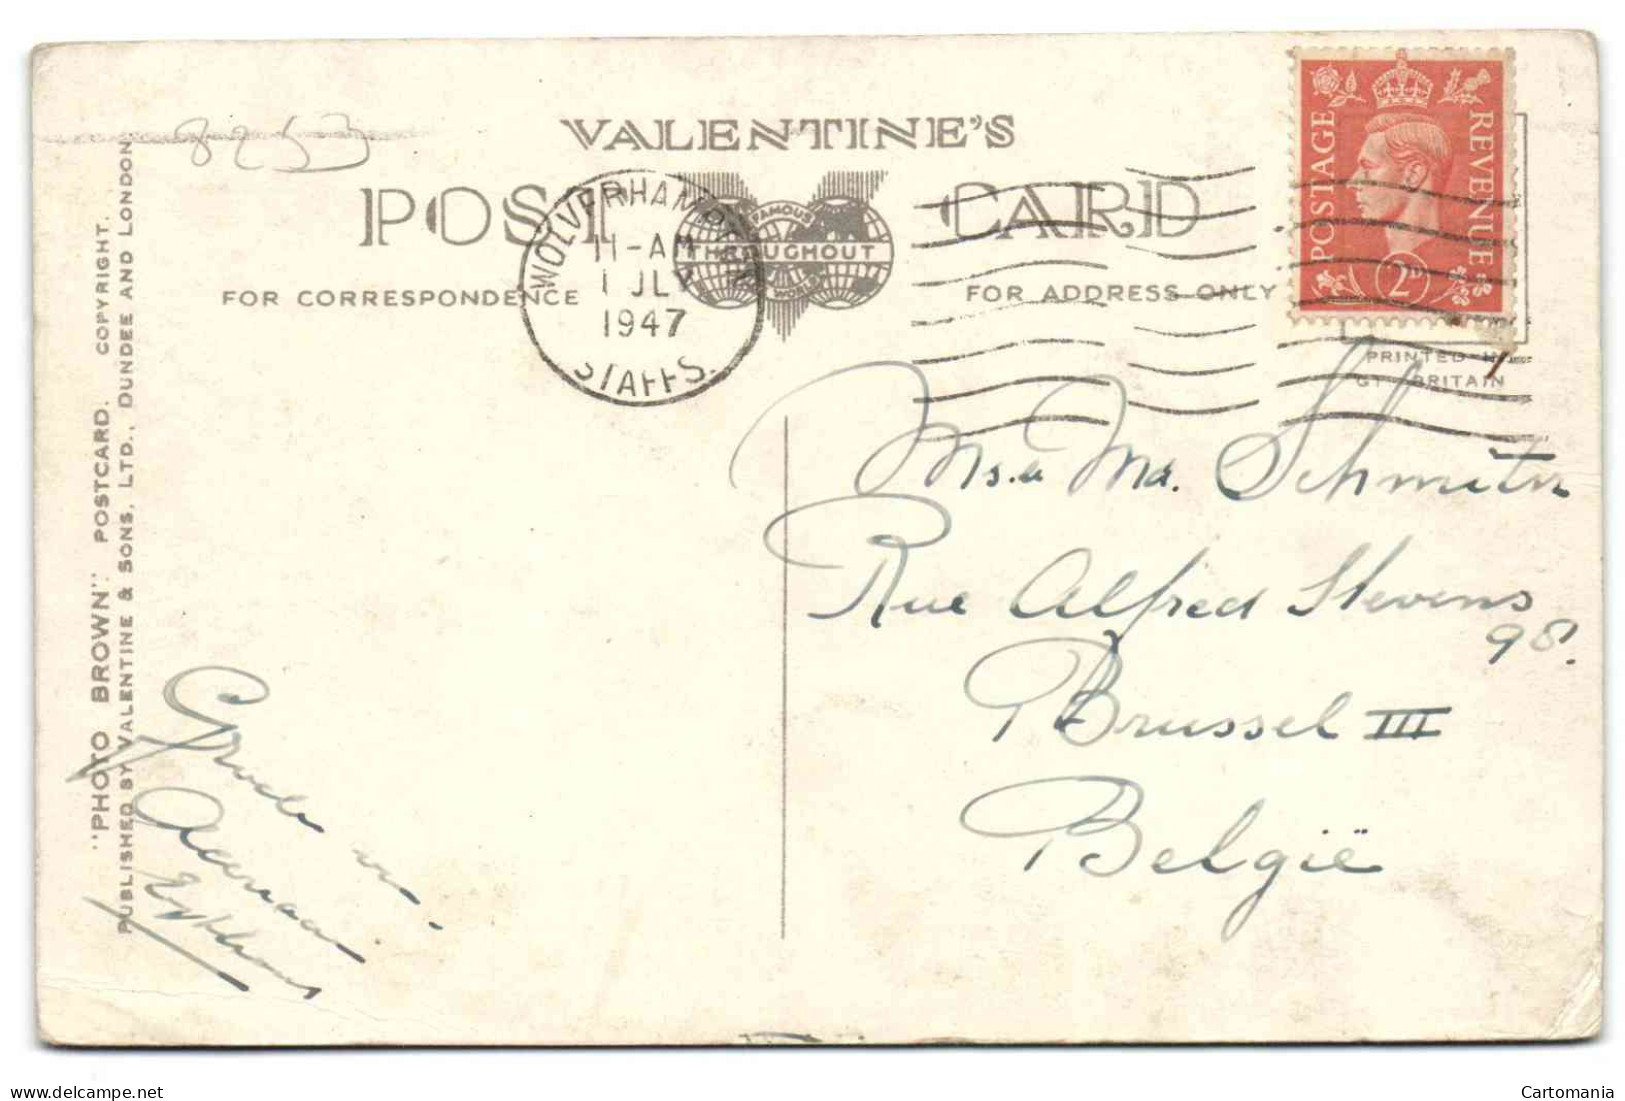 8253
VALENTINE'S
POST CARD
FAMOUS
THROUGHOUT
WORLD
FOR CORRESPONDENCE
FOR ADDRESS ONLY
WOLVERHAMPTON
11-AM
1 JLY
1947
STAFFS.
POSTAGE
REVENUE
2D
PRINTED IN
GT. BRITAIN
"PHOTO BROWN" POSTCARD. COPYRIGHT.
PUBLISHED BY VALENTINE & SONS, LTD., DUNDEE AND LONDON.
Ms. Md. Schmitz
Rue Alfred Stevens
98.
Brussel III
België
delcampe.net
Cartomania